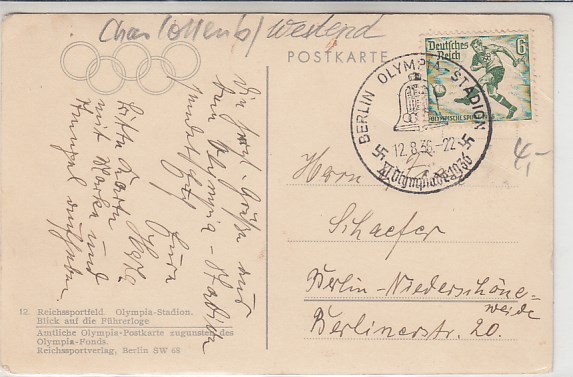 Charlottenb/ Westend
POSTKARTE
Deutsches
Reich
6
OLYMPISCHE SPIELE 1936
BERLIN OLYMPIA-STADION
12.8.36.-22
XI. Olympiade 1936
4,-
Herrn
Schaefer
Berlin-Niederschöne=
weide
Berlinerstr. 20.
Die Grüße aus
dem Olympia-Stadion
Eure
Bitte Karte
mit Marke und
Stempel aufheben
12. Reichssportfeld. Olympia-Stadion.
Blick auf die Führerloge
Amtliche Olympia-Postkarte zugunsten des
Olympia-Fonds.
Reichssportverlag, Berlin SW 68